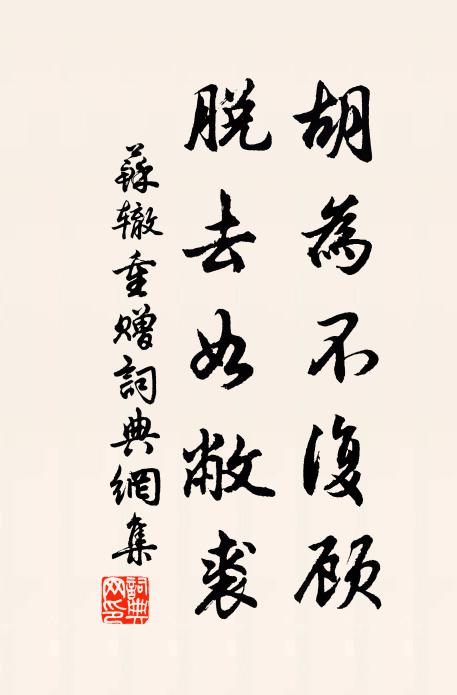 胡為不復顧
脱去如敝裘
蘇轍重贈詞典網集
詞典网印